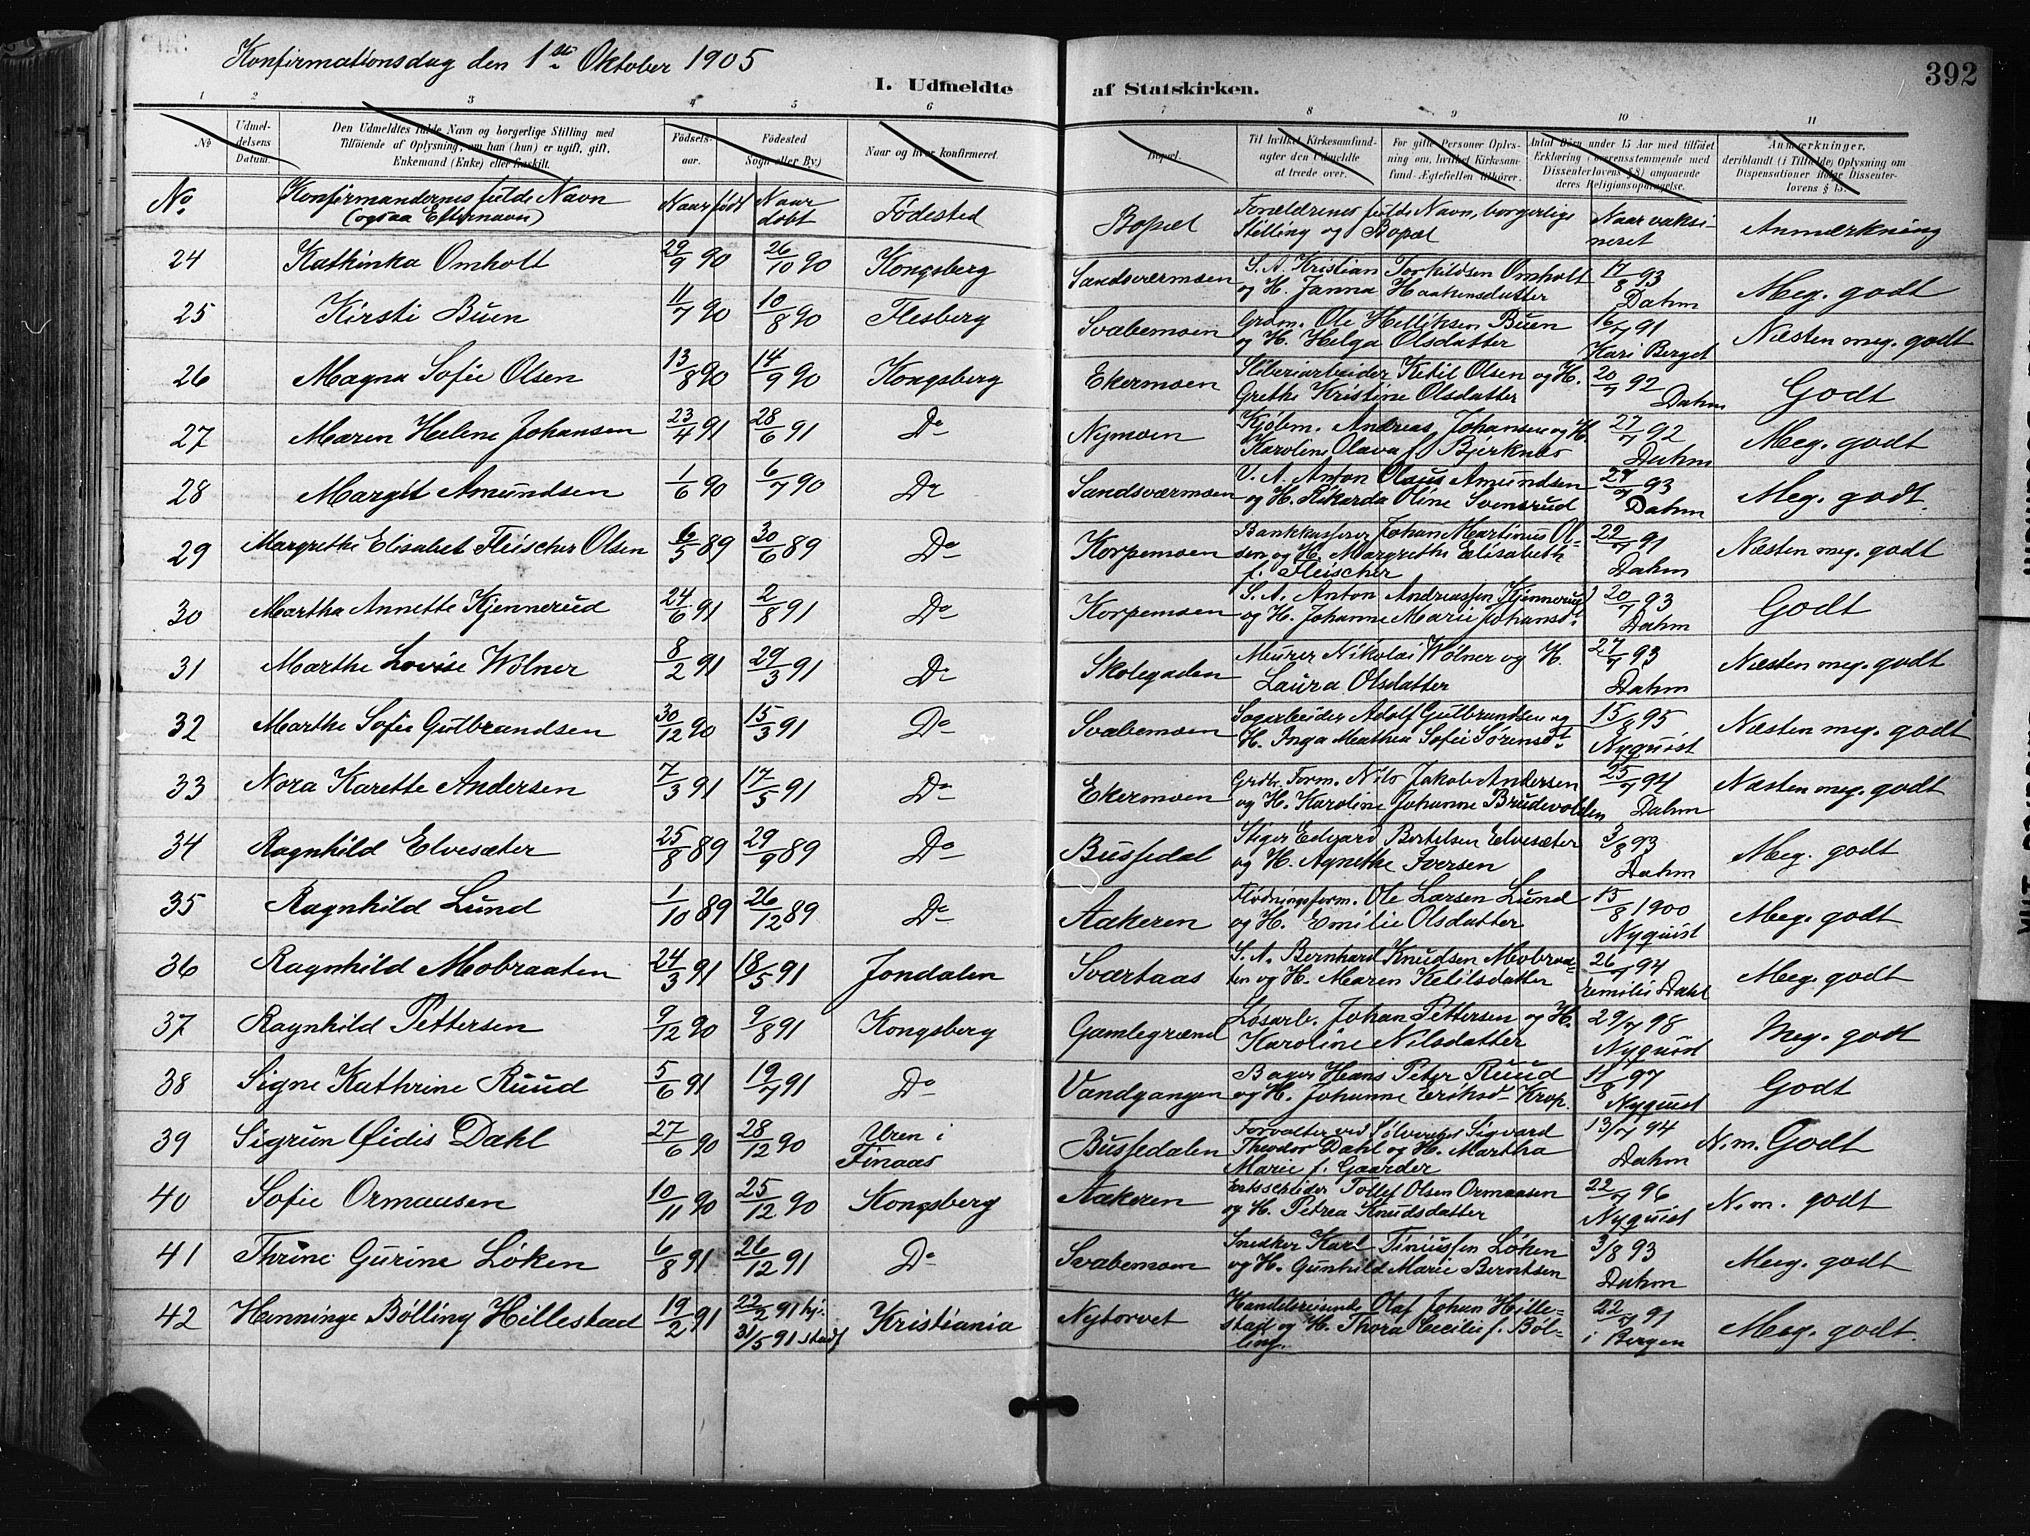 Konfirmationsdag den 1ste Oktober 1905
392
I. Udmeldte af Statskirken.
1 2 3 4 5 6 7 8 9 10 11
No Udmeldelsens Datum. Den Udmeldtes fulde Navn og borgerlige Stilling med Tilföiende af Oplysning, om han (hun) er ugift, gift, Enkemand (Enke) eller fraskilt. Födselsaar. Födested (Sogn eller By.) Naar og hvor konfirmeret. Bopæl. Til hvilket Kirkesamfund agter den Udmeldte at træde over. For gifte Personer Oplysning om, hvilket Kirkesamfund Ægtefællen tilhörer. Antal Börn under 15 Aar med tilföiet Erklæring i overensstemmende med Dissenterlovens § 8) angaaende deres Religionsopdragelse. Anmærkninger, deriblandt (i Tilfælde) Oplysning om Dispensationer ifölge Dissenterlovens § 15.
No. Konfirmandernes fulde Navn (ogsaa Efternavn) Naar født Naar døbt Fødested Bopæl Forældrenes fulde Navn, borgerlige Stilling og Bopæl Naar vaksineret Anmærkning
24 Kathinka Omholt 29/9 90 26/10 90 Kongsberg Sandsværmoen S. A. Kristian Torkildsen Omholt og H. Janna Haakensdatter 17/8 93 Dahm Meg. godt
25 Kirsti Buen 11/7 90 10/8 90 Flesberg Svabemoen Grdm. Ole Helliksen Buen og H. Helga Olsdatter 16/7 91 Kari Berget Næsten meg. godt
26 Magna Sofie Olsen 13/8 90 14/9 90 Kongsberg Ekermoen Sliberiarbeider Ketil Olsen og H. Grethe Kristine Olsdatter 20/7 92 Dahm Godt
27 Maren Helene Johansen 23/4 91 28/6 91 Do Nymoen Kjøbm. Andreas Johansen og H. Karoline Olava f. Bjerknes 27/7 92 Dahm Meg. godt
28 Margit Amundsen 1/6 90 6/7 90 Do Sandsværmoen V. A. Anton Olaus Amundsen og H. Rikarda Oline Svensrud 27/7 93 Dahm Meg. godt.
29 Margrethe Elisabet Fleischer Olsen 6/5 89 30/6 89 Do Korpemoen Bankkasserer Johan Martinus Olsen og H. Margrethe Elisabeth f. Fleischer 22/7 91 Dahm Næsten meg. godt
30 Martha Annette Kjennerud 24/6 91 2/8 91 Do Korpemoen S. A. Anton Andreassen Kjennerud og H. Johanne Marie Johansdt. 20/7 93 Dahm Godt
31 Marthe Lovise Wølner 8/2 91 29/3 91 Do Skolegaden Murer Nikolai Wølner og H. Laura Olsdatter 27/7 93 Dahm Næsten meg. godt
32 Marthe Sofie Gulbrandsen 30/12 90 15/3 91 Do Svabemoen Sagarbeider Adolf Gulbrandsen og H. Inga Mathea Sofie Sørensdt. 15/8 95 Nyquist Næsten meg. godt
33 Nora Karette Andersen 7/3 91 17/5 91 Do Ekermoen Grdbr. Form. Nils Jakob Andersen og H. Karoline Johanne Brudevolden 25/7 94 Dahm Næsten meg. godt
34 Ragnhild Elvesæter 25/8 89 29/9 89 Do Bussedal Stiger Edvard Bertelsen Elvesæter og H. Agnethe Iversen 3/8 93 Dahm Meg. godt
35 Ragnhild Lund 1/10 89 26/12 89 Do Aakeren Flødningsform. Ole Larsen Lund og H. Emilie Olsdatter 15/8 1900 Nyquist Meg. godt
36 Ragnhild Mobraaten 24/3 91 18/5 91 Jondalen Sværtaas S. A. Bernhard Knudsen Mobraaten og H. Maren Ketilsdatter 26/7 94 Emilie Dahl Meg. godt
37 Ragnhild Pettersen 9/12 90 9/8 91 Kongsberg Gamlegrænd Løsarb. Johan Pettersen og H. Karoline Nilsdatter 29/7 98 Nyquist Meg. godt
38 Signe Kathrine Ruud 5/6 91 19/7 91 Do Vandgangen Bager Hans Peter Ruud og H. Johanne Eriksd. Krop. 11/8 97 Nyquist Godt
39 Sigrun Øidis Dahl 27/6 90 28/12 90 Uren i Finaas Bussedalen Forvalter ved Sølvverket Sigvard Theodor Dahl og H. Martha Marie f. Gaarder 13/7 94 Dahm N. m. Godt
40 Sofie Ormaasen 10/11 90 25/12 90 Kongsberg Aakeren Ertsscheider Tollef Olsen Ormaasen og H. Petrea Knudsdatter 22/7 96 Nyquist N. m. godt
41 Thrine Gurine Løken 6/8 91 26/12 91 Do Svabemoen Snedker Karl Tiniussen Løken og H. Gunhild Marie Berntsen 3/8 93 Dahm Meg. godt
42 Henninge Bølling Hillestad 19/2 91 22/2 91 hj. 31/5 91 stadf Kristiania Nytorvet Handelsreisende Olaf Johan Hillestad og H. Thora Cecilie f. Bølling. 22/7 91 i Bergen Meg. godt.